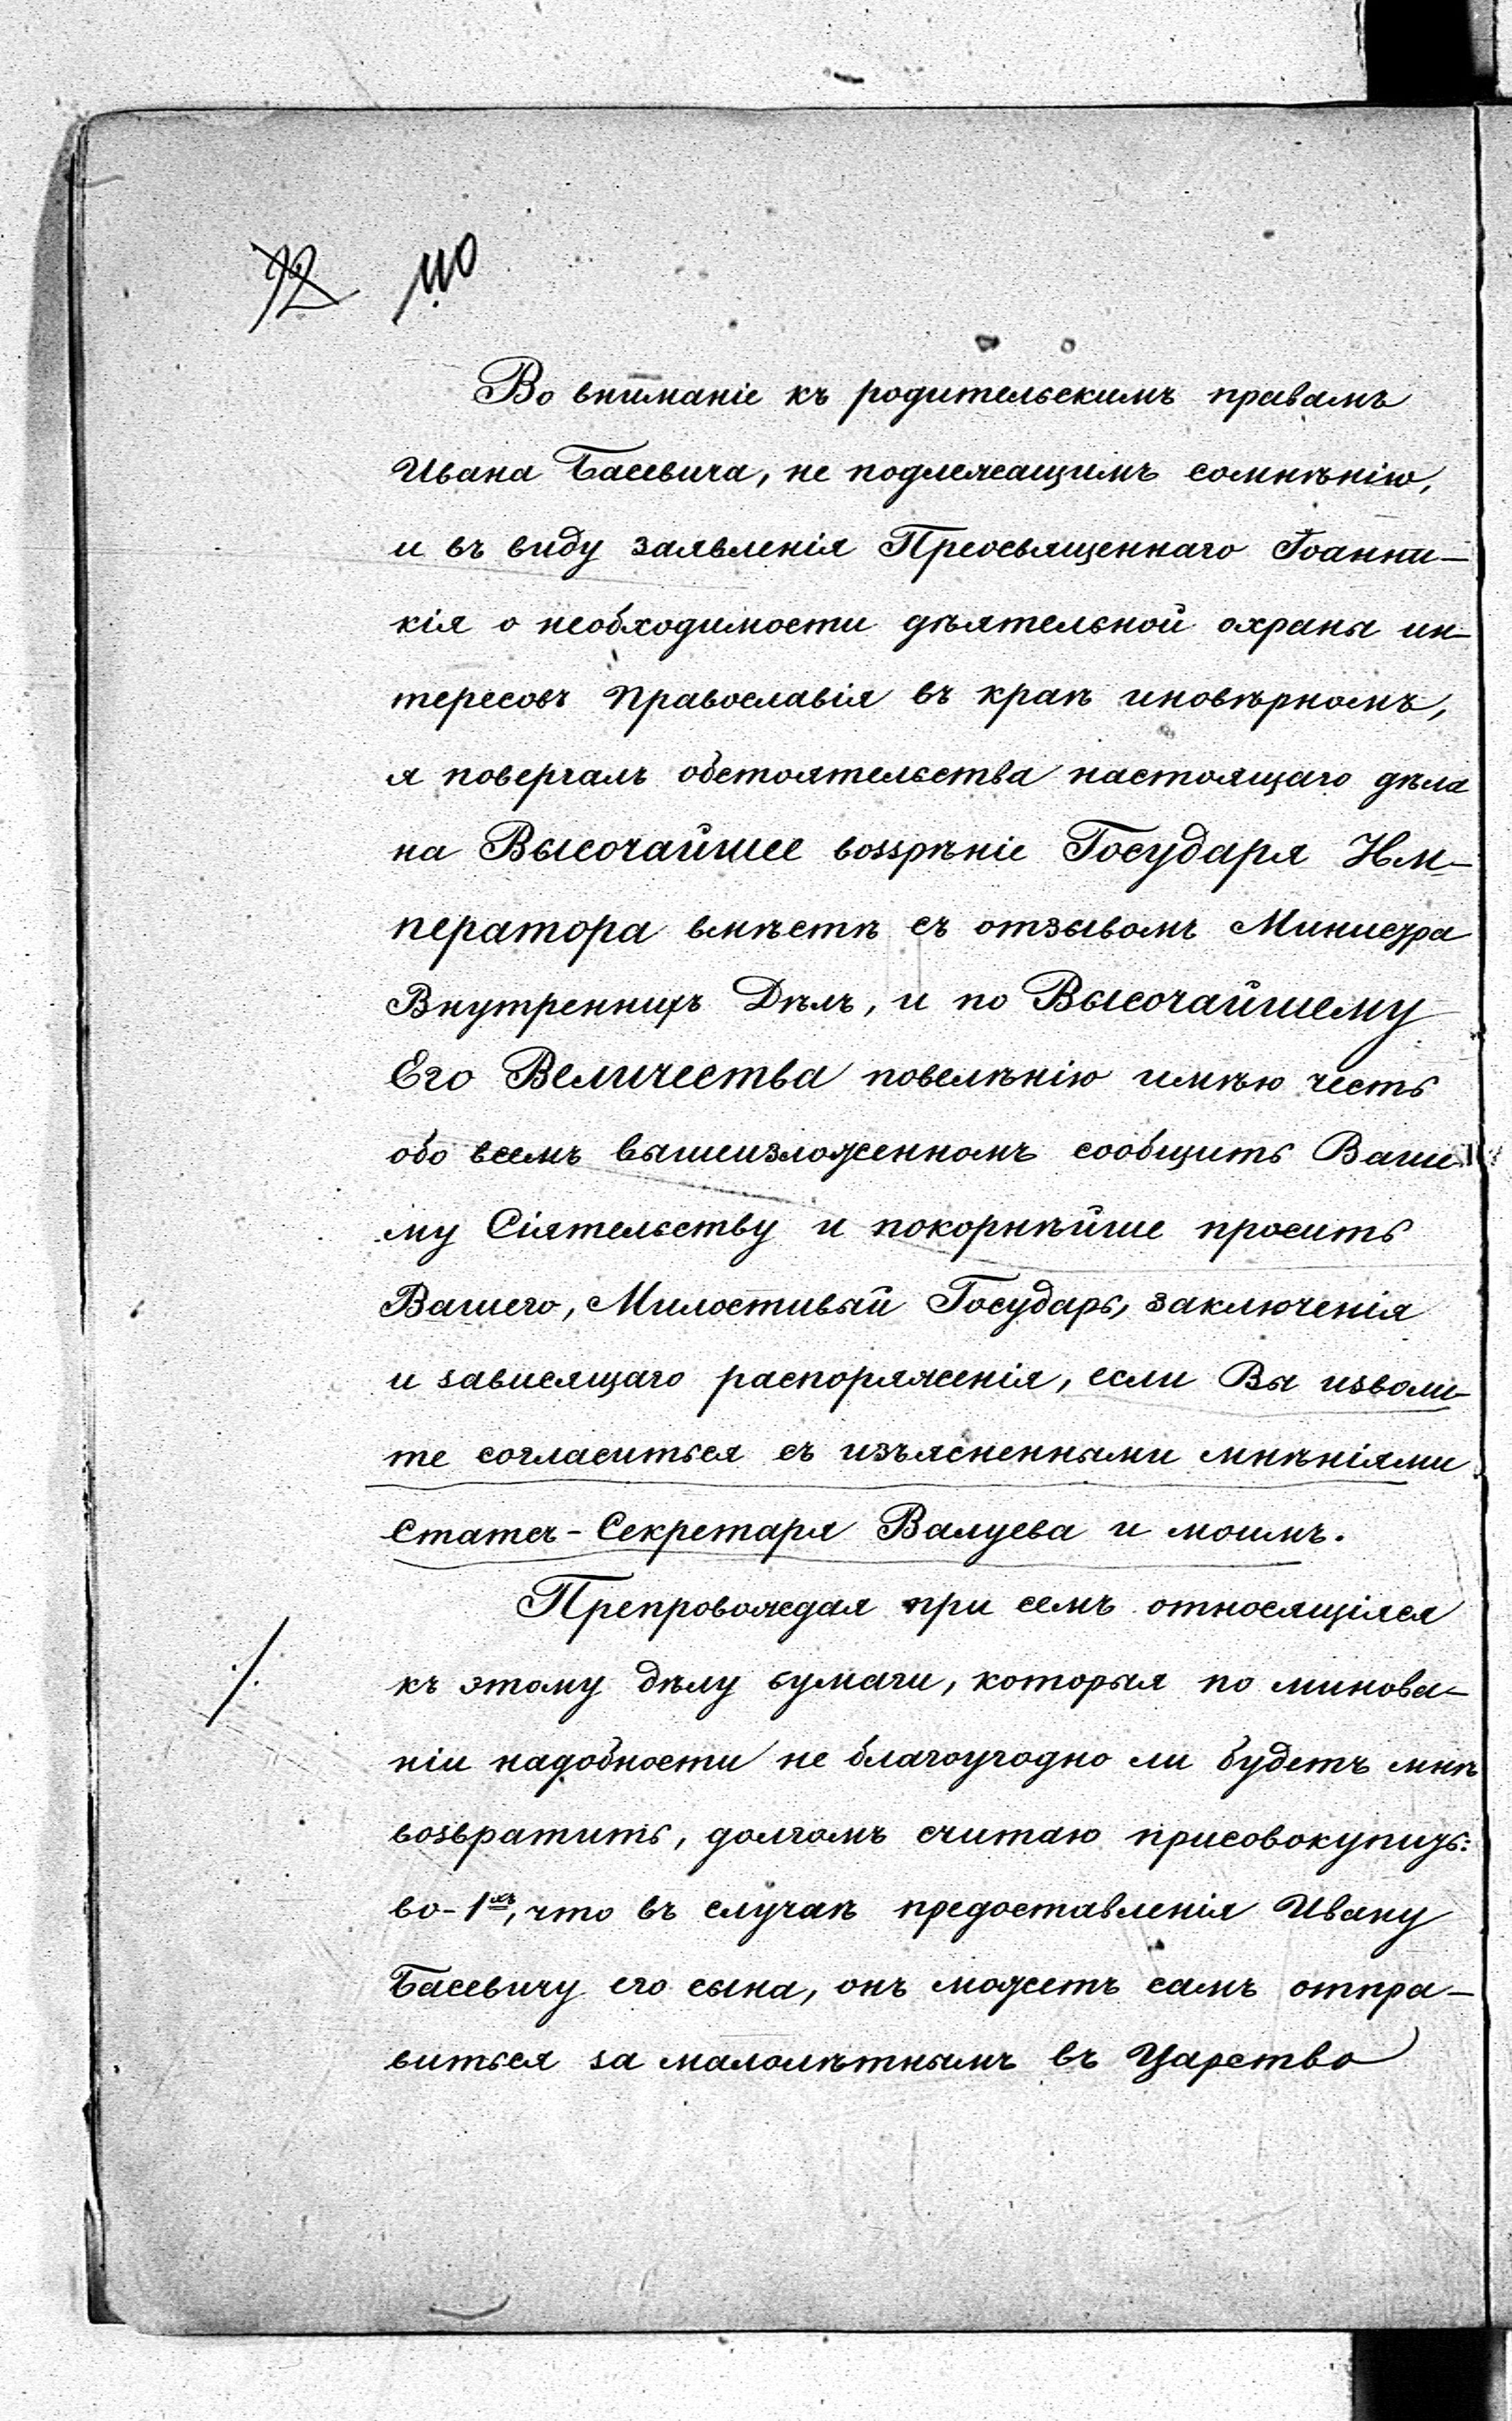 92 110
Во вниманіе къ родительскимъ правамъ
Ивана Басевича, не подлежащимъ сомнѣнію,
и въ виду заявленія Преосвященнаго Іоанни-
кія о необходимости дѣятельной охраны ин-
тересовъ Православія въ краѣ иновѣрномъ,
я повергалъ обстоятельства настоящаго дѣла
на Высочайшее воззрѣніе Государя Им-
ператора вмѣстѣ съ отзывомъ Министра
Внутреннихъ Дѣлъ, и по Высочайшему
Его Величества повелѣнію имѣю честь
обо всемъ вышеизложенномъ сообщить Ваше-
му Сіятельству и покорнѣйше просить
Вашего, Милостивый Государь, заключенія
и зависящаго распоряженія, если Вы изволи-
те согласиться съ изъясненными мнѣніями
Статсъ-Секретаря Валуева и моимъ.
Препровождая при семъ относящіяся
./. къ этому дѣлу бумаги, которыя по минова-
ніи надобности не благоугодно ли будетъ мнѣ
возвратить, долгомъ считаю присовокупить:
во-1хъ, что въ случаѣ предоставленія Ивану
Басевичу его сына, онъ можетъ самъ отпра-
виться за малолѣтнымъ въ Царство